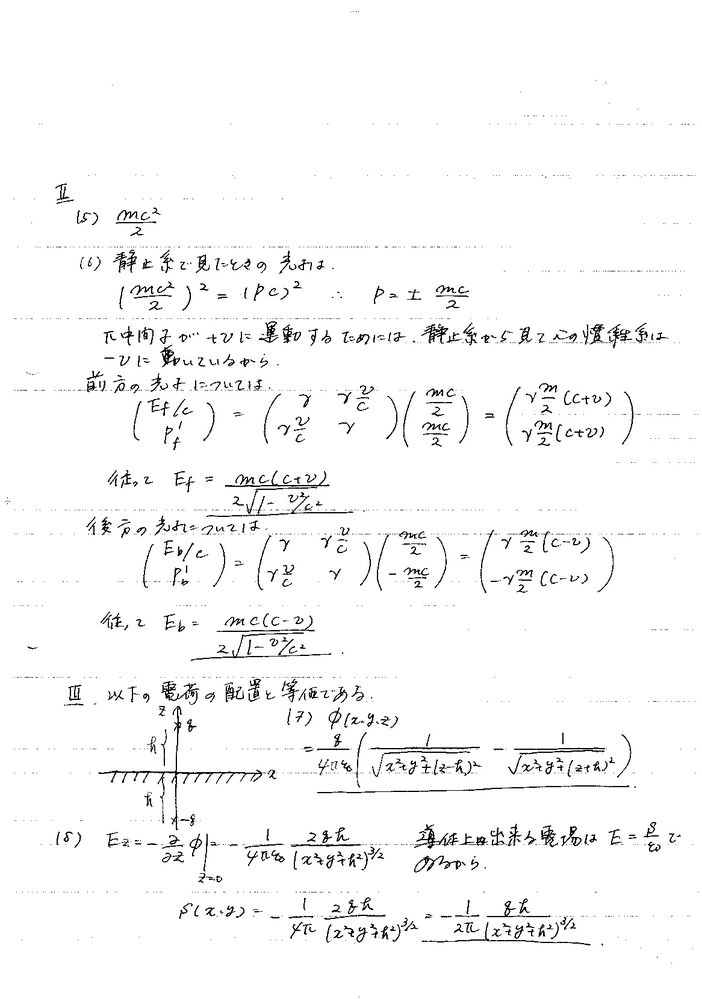 II
(5) mc²/2
(6) 静止系で見たときの光子は.
(mc²/2)² = (pc)² ∴ p = ± mc/2
π中間子が+vに運動するためには、静止系から見て元の慣性系は
-vに動いているから.
前方の光子については.
(Ef/c, p'f) = (γ, γv/c; γv/c, γ)(mc/2, mc/2) = (γ m/2 (c+v), γ m/2 (c+v))
従って Ef = mc(c+v) / 2√(1-v²/c²)
後方の光子については.
(Eb/c, p'b) = (γ, γv/c; γv/c, γ)(mc/2, -mc/2) = (γ m/2 (c-v), -γ m/2 (c-v))
従って Eb = mc(c-v) / 2√(1-v²/c²)
III. 以下の電荷の配置と等価である.
z q
h
x
h
-q
(7) φ(x,y,z)
= q/4πε₀ (1/√(x²+y²+(z-h)²) - 1/√(x²+y²+(z+h)²))
(8) Ez = -∂/∂z φ|z=0 = - 1/4πε₀ 2qh/(x²+y²+h²)^3/2 導体上に出来る電場は E = ρ/ε₀ で
あるから.
ρ(x,y) = - 1/4π 2qh/(x²+y²+h²)^3/2 = - 1/2π qh/(x²+y²+h²)^3/2